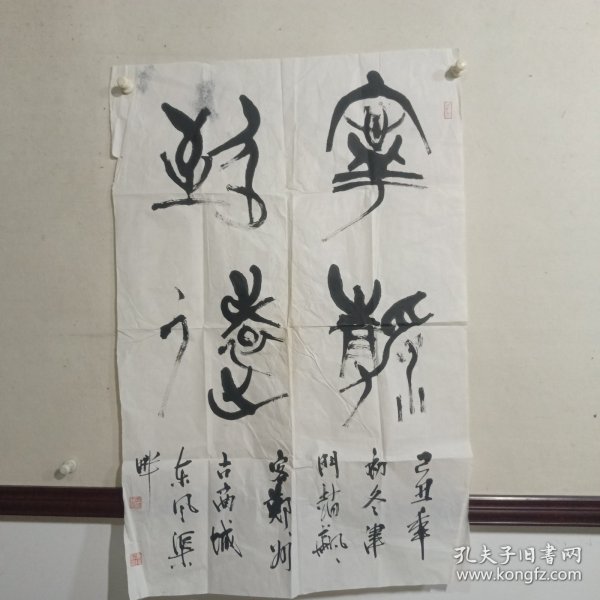 寧靜
致遠
己丑年
初冬津
門
客鄭州
古商城
东风渠
畔
孔夫子旧书网
www.kongfz.com